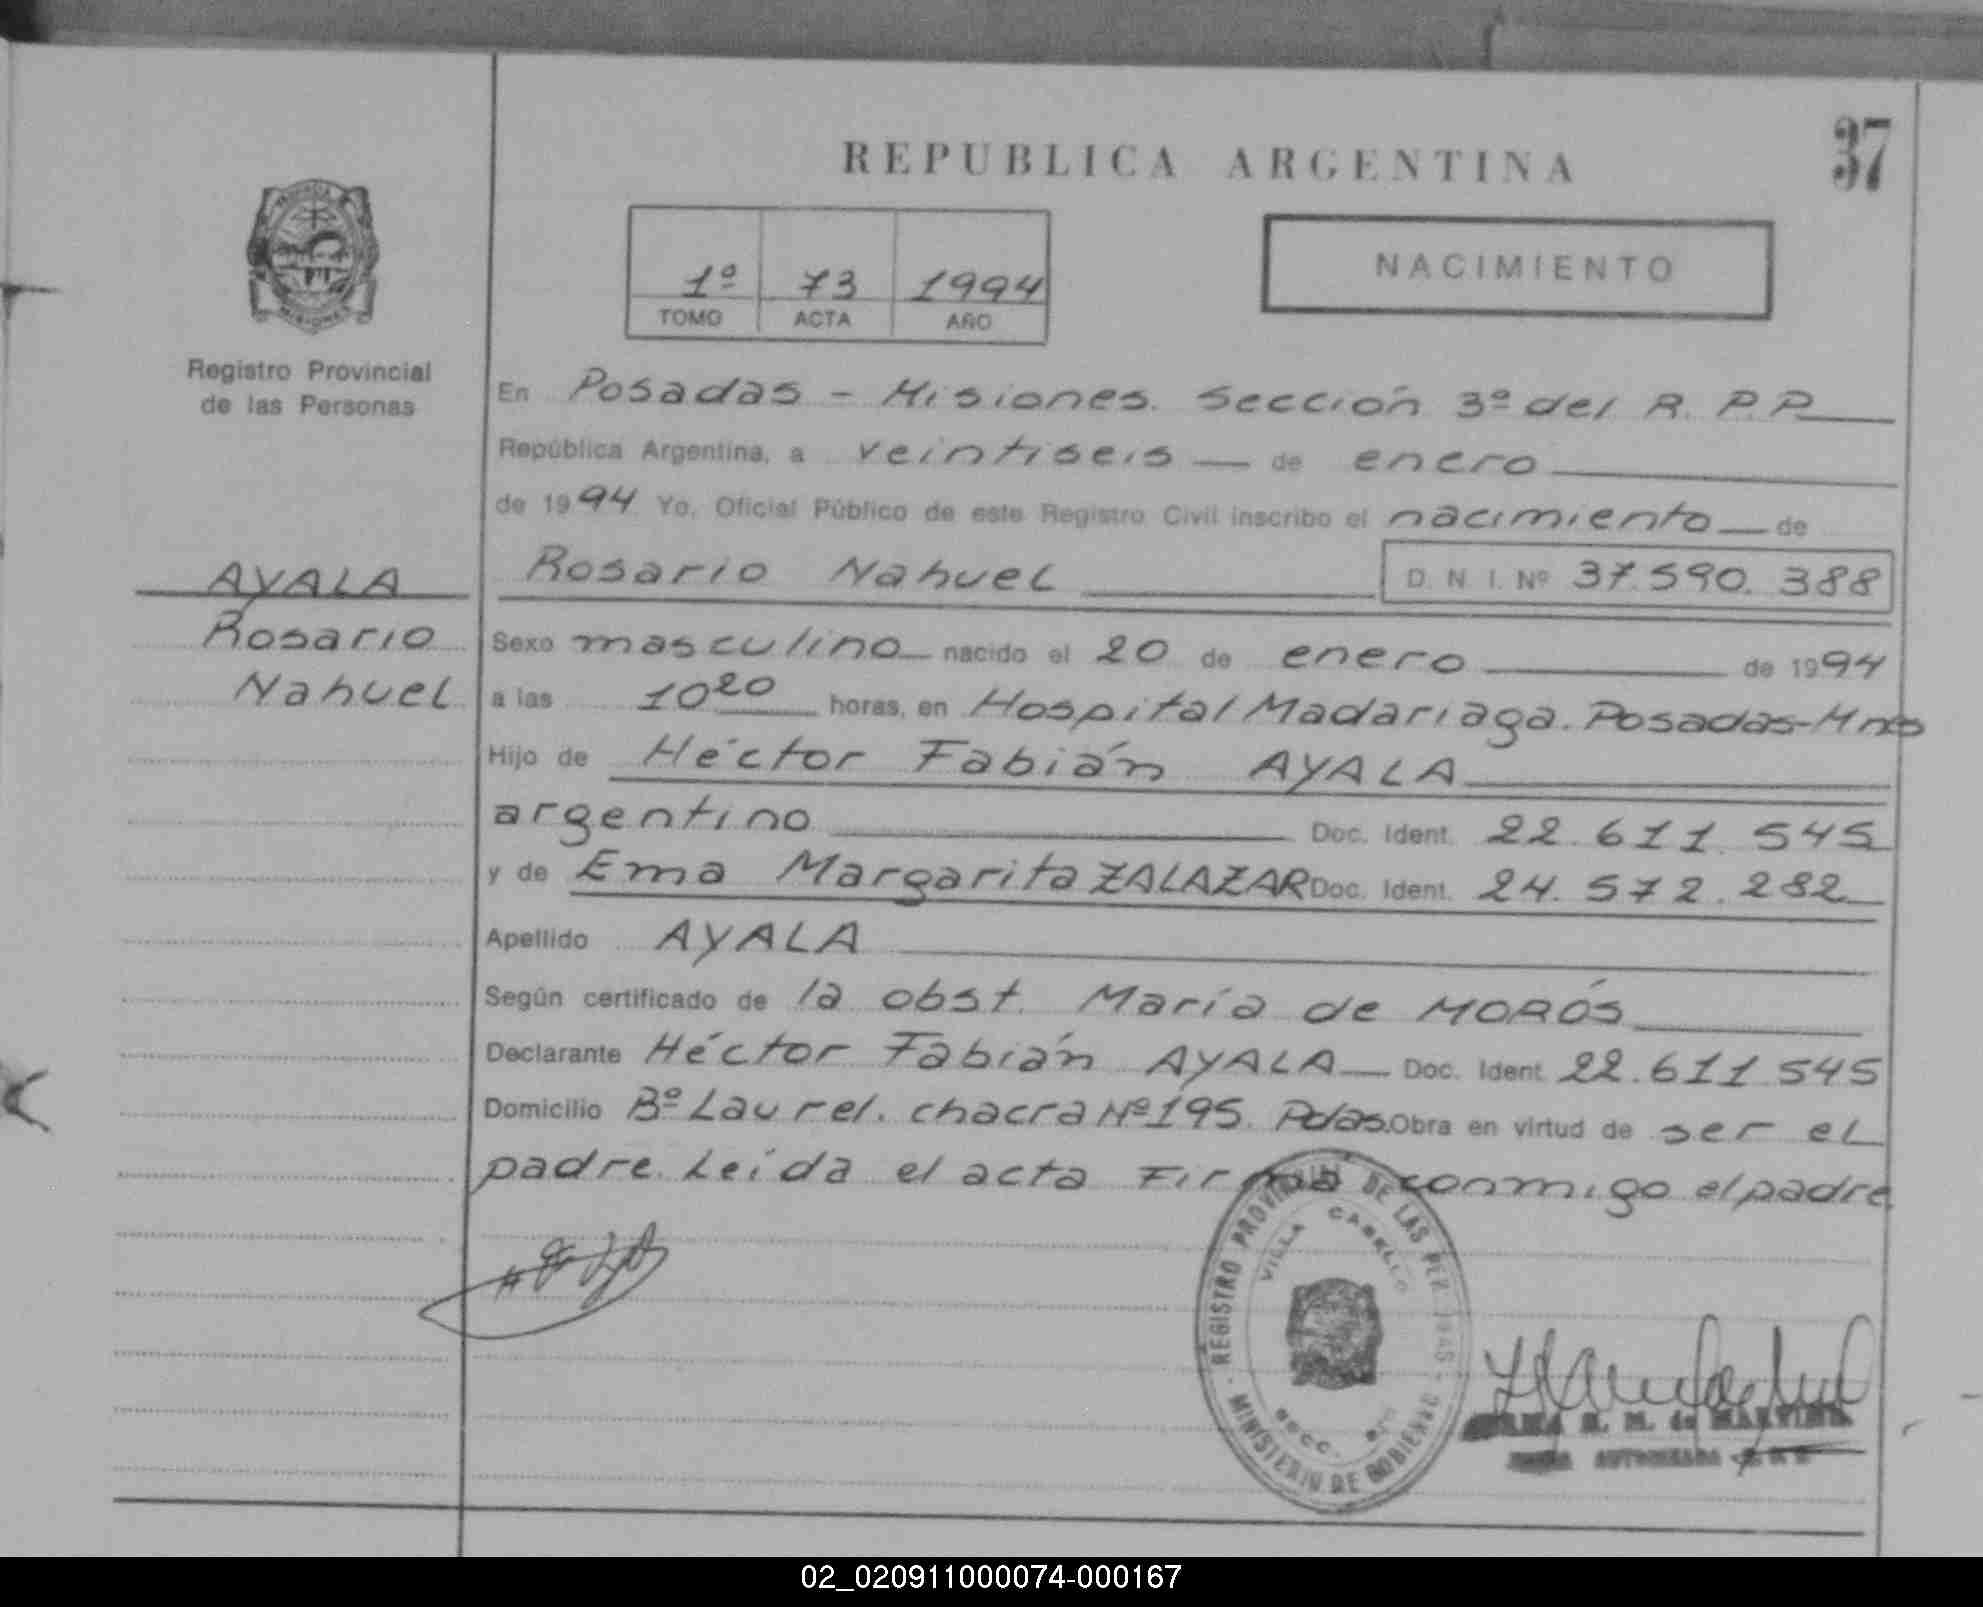 37
REPUBLICA ARGENTINA
1º 73 1994
TOMO ACTA AÑO
NACIMIENTO
MISIONES
Registro Provincial
de las Personas
AYALA
Rosario
Nahuel
En Posadas - Misiones. Sección 3º del R. P. P.
República Argentina, a veintiseis de enero
de 1994 Yo, Oficial Público de este Registro Civil inscribo el nacimiento de
Rosario Nahuel D. N. I. Nº 37.590.388
Sexo masculino nacido el 20 de enero de 1994
a las 10 20 horas, en Hospital Madariaga. Posadas-Mnes
Hijo de Héctor Fabián AYALA
argentino Doc. Ident. 22.611.545
y de Ema Margarita ZALAZAR Doc. Ident. 24.572.282
Apellido AYALA
Según certificado de la obst. María de MORÓS
Declarante Héctor Fabián AYALA Doc. Ident. 22.611.545
Domicilio Bº Laurel. chacra Nº 195. Pdas. Obra en virtud de ser el
padre. Leída el acta Firma conmigo el padre
REGISTRO PROVINCIAL DE LAS PER
VILLA CABELLO
SECC.
MINISTERIO DE GOBIERNO
M. de
AUTORIZADA
02_020911000074-000167